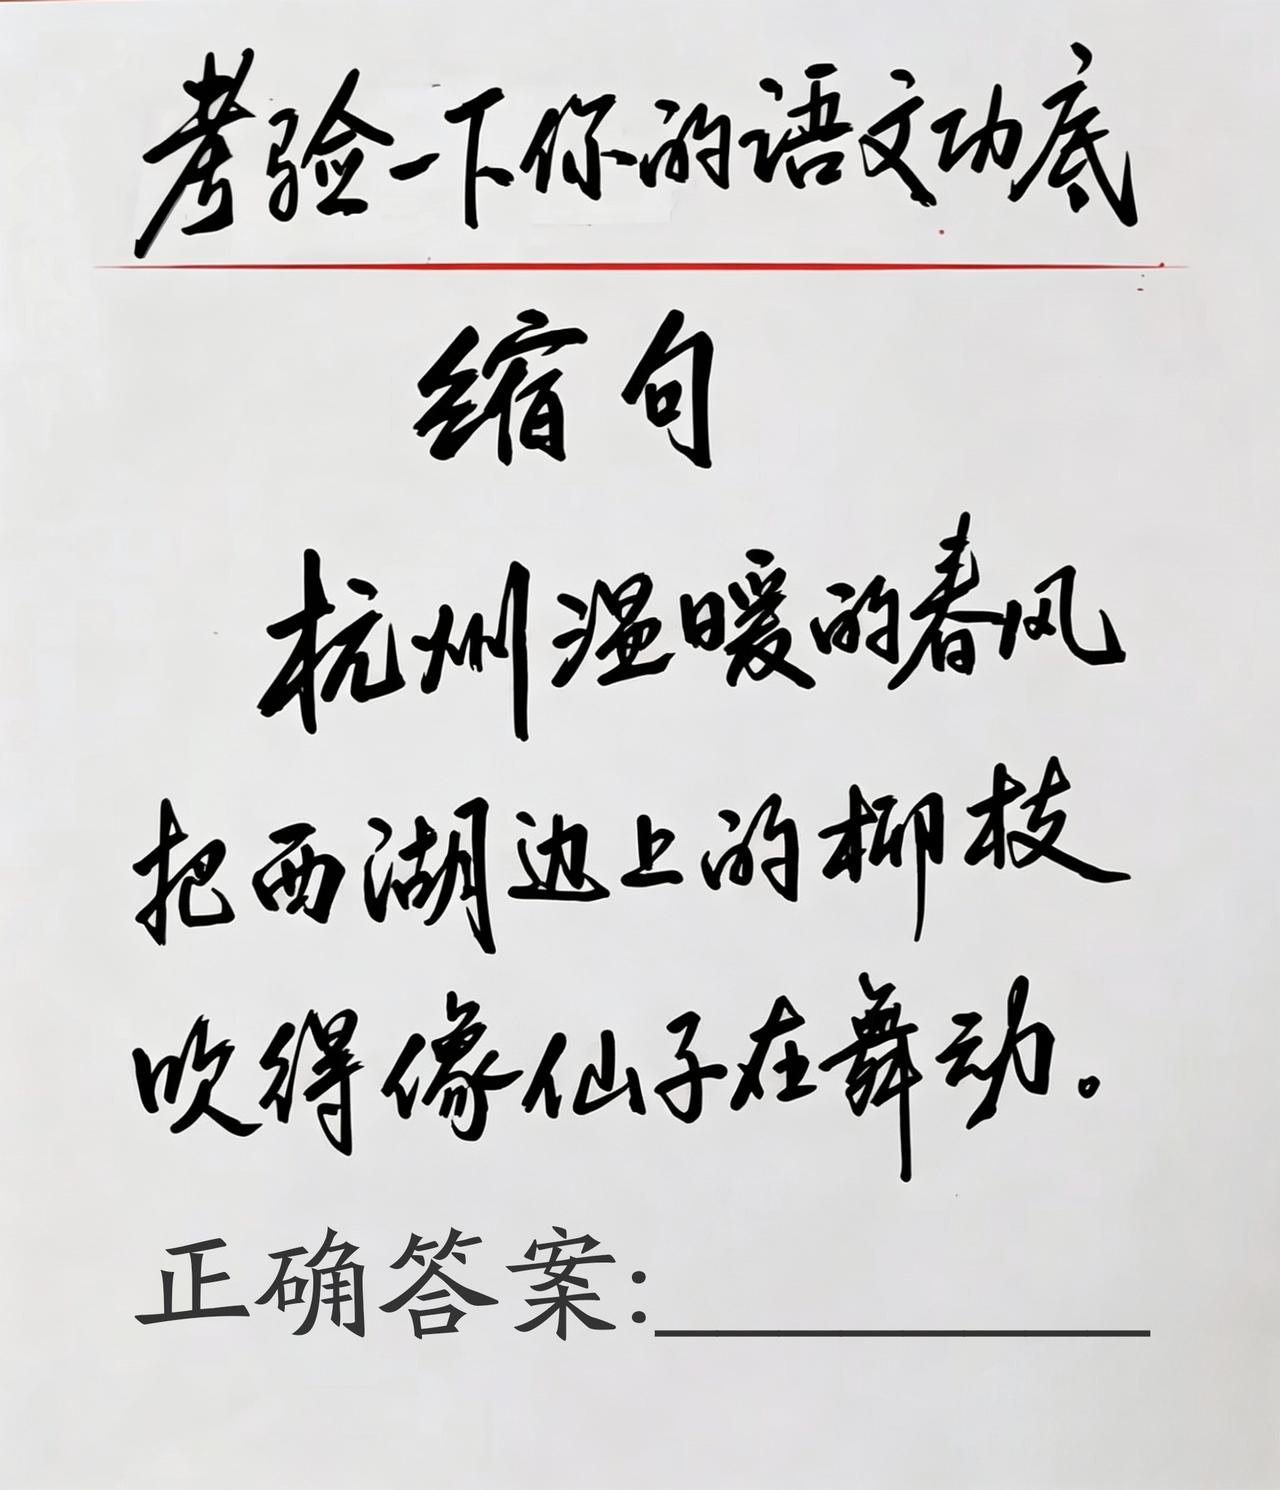 考验一下你的语文功底
缩句
杭州温暖的春风
把西湖边上的柳枝
吹得像仙子在舞动。
正确答案:________